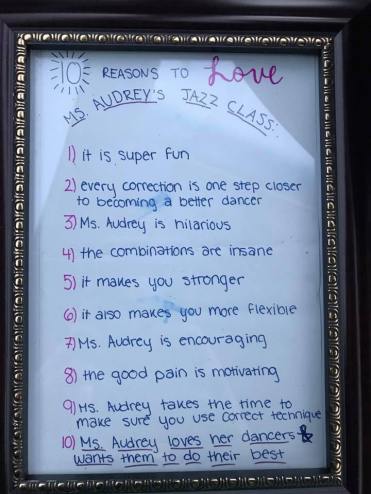 10 REASONS TO Love
MS. AUDREY'S JAZZ CLASS:
1) it is super fun
2) every correction is one step closer
to becoming a better dancer
3) Ms. Audrey is hilarious
4) the combinations are insane
5) it makes you stronger
6) it also makes you more flexible
7) Ms. Audrey is encouraging
8) the good pain is motivating
9) Ms. Audrey takes the time to
make sure you use correct technique
10) Ms. Audrey loves her dancers &
wants them to do their best